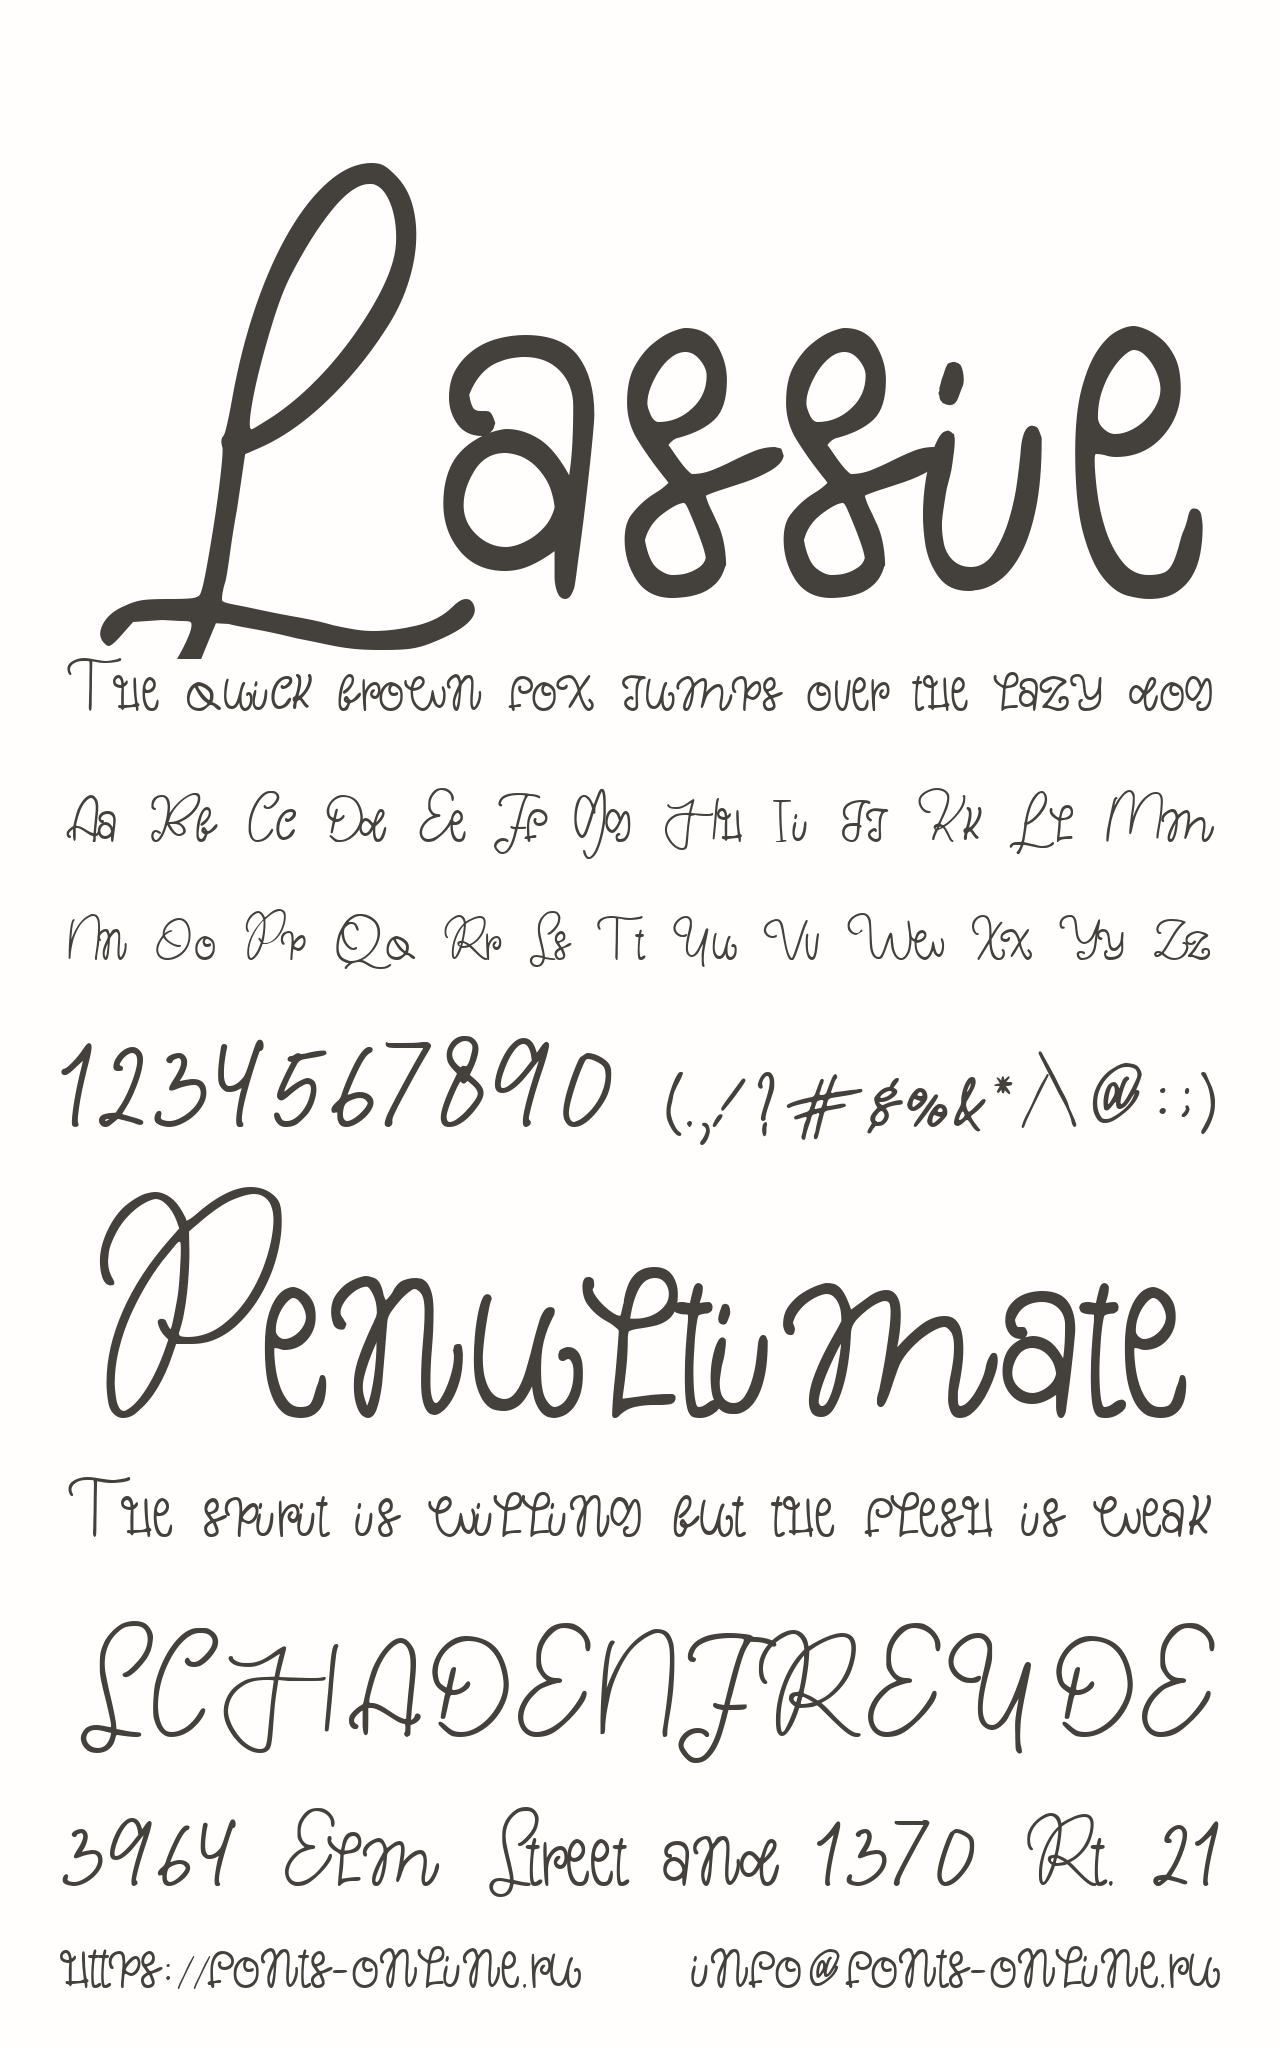 Lassie
The quick brown fox jumps over the lazy dog
Aa Bb Cc Dd Ee Ff Gg Hh Ii Jj Kk Ll Mm
Nn Oo Pp Qq Rr Ss Tt Uu Vv Ww Xx Yy Zz
1234567890 (.,/?#$%&*/\@:;)
Penultimate
The spirit is willing but the flesh is weak
SCHADENFREUDE
3964 Elm Street and 1370 Rt. 21
https://fonts-online.ru info@fonts-online.ru